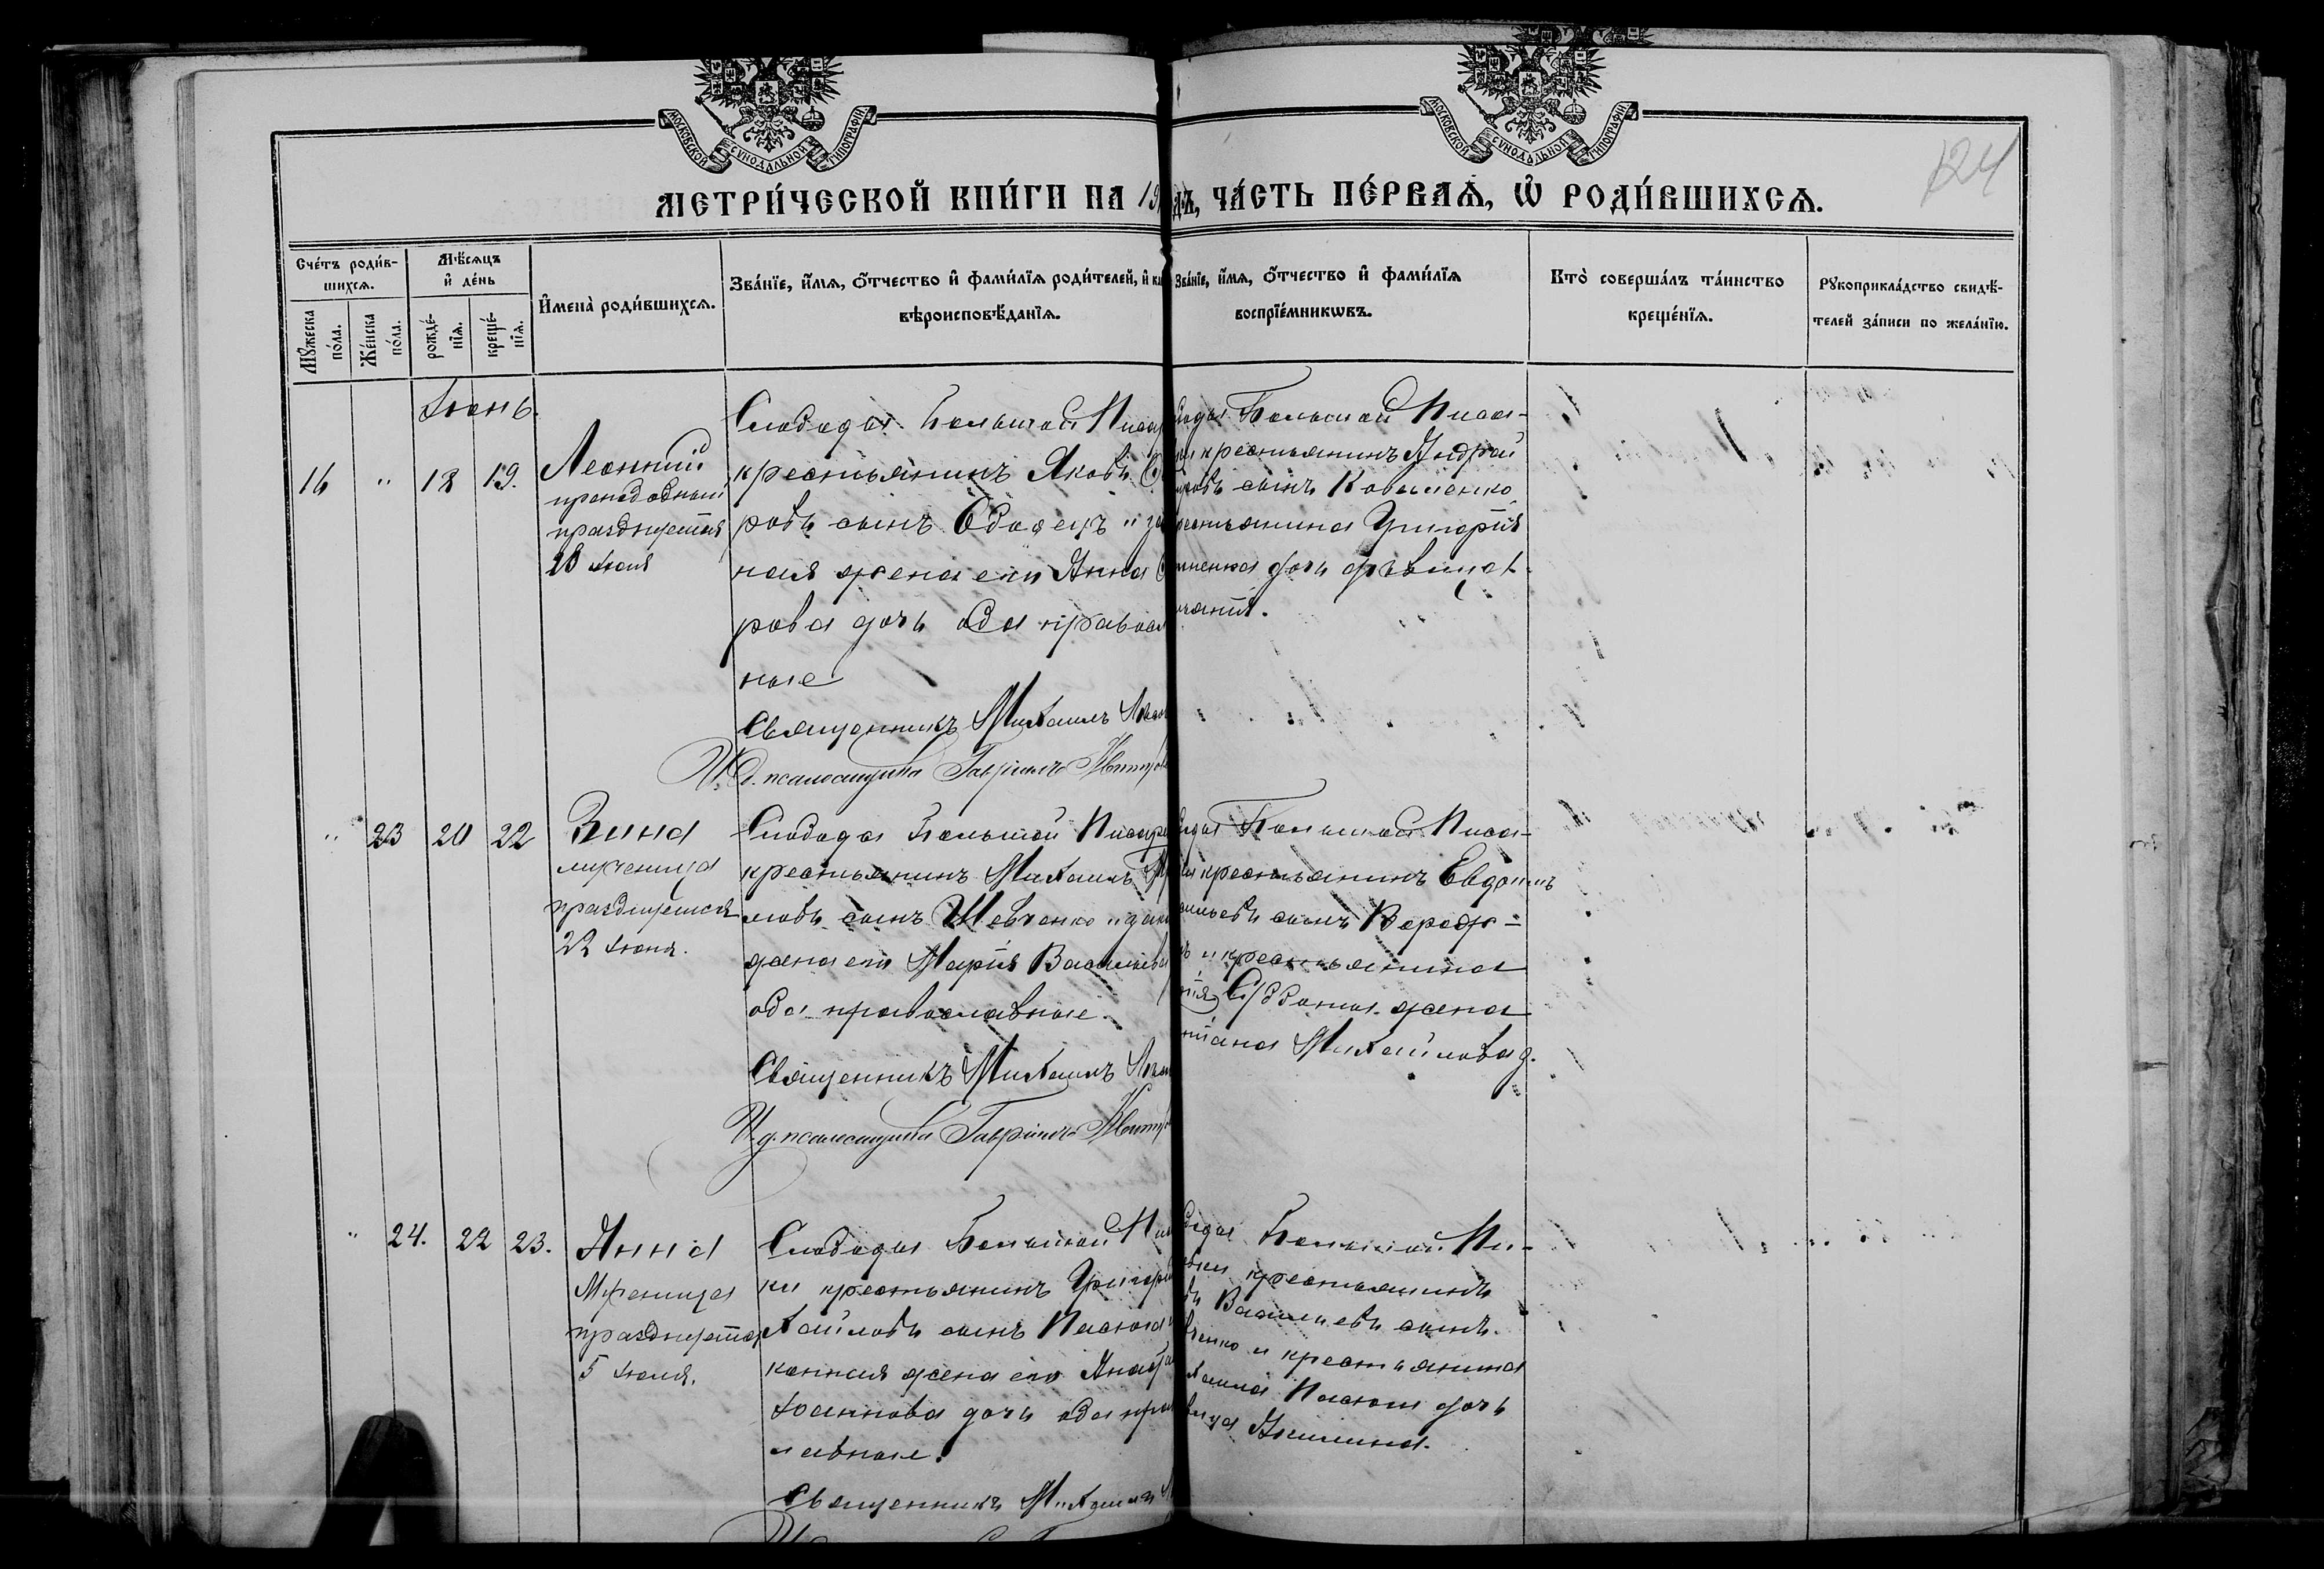 МОСКОВСКОЙ СУНОДАЛЬНОЙ ТИПОГРАФІИ
МОСКОВСКОЙ СУНОДАЛЬНОЙ ТИПОГРАФІИ
124
МЕТРИ́ЧЕСКОЙ КНИ́ГИ НА 19
дъ, ЧА́СТЬ ПЕ́РВАѦ, Ѡ҆ РОДИ́ВШИХСѦ.
Сче́тъ роди́в-
шихсѧ.
Мꙋ́жеска по́ла.
Же́нска по́ла.
Мѣ́сѧцъ
и҆ де́нь
рожде́-
нїѧ.
креще́-
нїѧ.
И҆мена̀ роди́вшихсѧ.
Зва́нїе, и҆́мѧ, ѻ҆́тчество и҆ фами́лїѧ роди́телей, и҆
вѣроисповѣ́данїѧ.
Зва́нїе, и҆́мѧ, ѻ҆́тчество и҆ фами́лїѧ
воспрїе́мникѡвъ.
Кто̀ соверша́лъ та́инство
креще́нїѧ.
Рꙋкоприкла́дство свидѣ́-
телей за́писи по жела́нїю.
Іюнь.
16 " 18 19.
Леонтій
преподобный
празднуется
28 Іюня
Слободы Большой Писар
крестьянинъ Яковъ
ровъ сынъ "за
ная жена его Анна
рова дочь оба правосл
ные
Священникъ Михаилъ
И. д. псаломщика Гавріилъ
ободы Большой Писа-
крестьянинъ Андрей
сынъ Коваленко
рестьянина Григорія
дочь дѣвица
" 23 20 22
Зина
мученица
празднуется
22 Іюня.
Слободы Большой Писаре
крестьянинъ Михаилъ
ловъ сынъ Шевченко "зако
жена его Марія Васильева
оба православные.
Священникъ Михаилъ
И. д. псаломщика Гавріилъ
ободы Большой Писа-
крестьянинъ Евдоимъ
сильевъ сынъ
ъ и крестьянина
жена
Михайлова д.
" 24. 22 23.
Анна
Мученица
празднуется
5 Іюля.
Слободы Большой Писа
ки крестьянинъ Григорій
хайловъ сынъ Пасюкъ
конная жена его Анаста
Іоаннова дочь оба прав
лавные.
Священникъ Михаилъ
ободы Большой Пи-
крестьянинъ
ъ Васильевъ сынъ
вченко и крестьянина
хаила Пасюка дочь
вица Акилина.